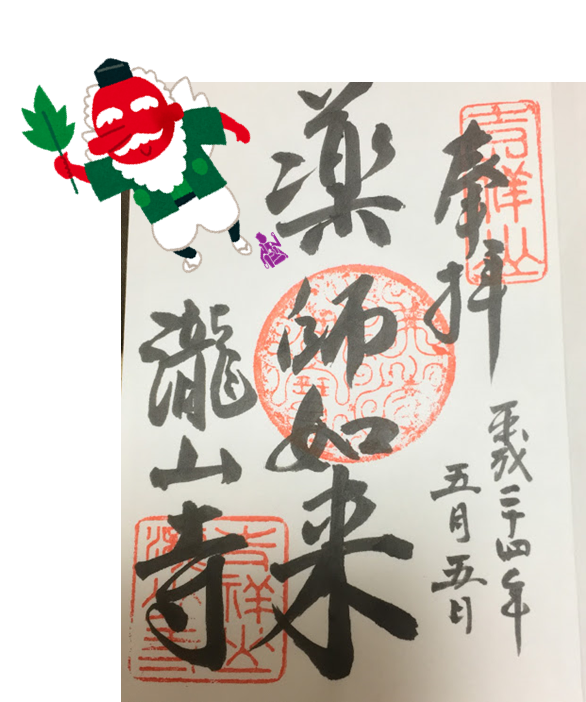 吉祥山
奉拝
平成二十四年
五月五日
薬師如来
瀧山寺
吉祥山
瀧山寺